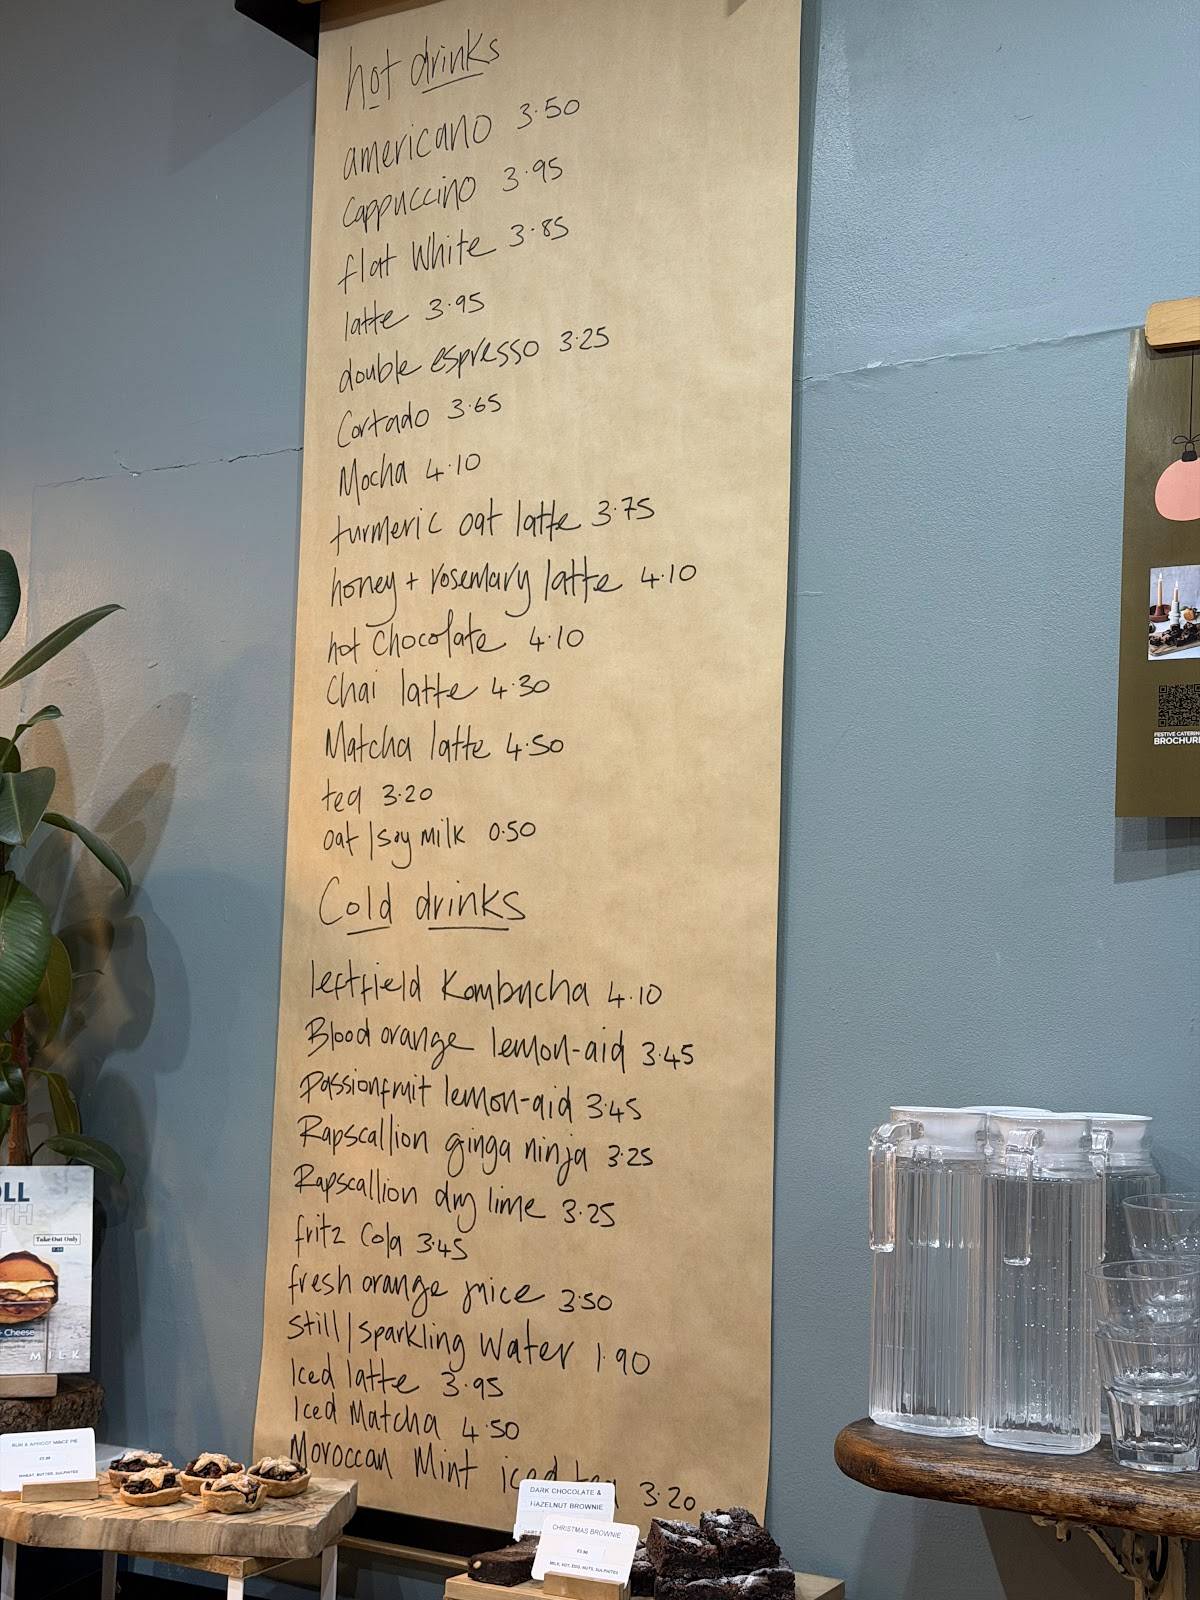 hot drinks
americano 3.50
cappuccino 3.95
flat white 3.85
latte 3.95
double espresso 3.25
Cortado 3.65
Mocha 4.10
turmeric oat latte 3.75
honey + rosemary latte 4.10
hot chocolate 4.10
Chai latte 4.30
Matcha latte 4.50
tea 3.20
oat/soy milk 0.50
Cold drinks
leftfield Kombucha 4.10
Blood orange lemon-aid 3.45
Passionfruit lemon-aid 3.45
Rapscallion ginga ninja 3.25
Rapscallion dry lime 3.25
fritz Cola 3.45
fresh orange juice 3.50
Still/sparkling water 1.90
Iced latte 3.95
Iced Matcha 4.50
Moroccan Mint iced tea 3.20
FESTIVE CATERING
BROCHURE
Take Out Only
Cheese
MILK
RUM & APRICOT MINCE PIE
WHEAT, BUTTER, SULPHITES
DARK CHOCOLATE &
HAZELNUT BROWNIE
CHRISTMAS BROWNIE
MILK, SOY, EGG, NUTS, SULPHITES